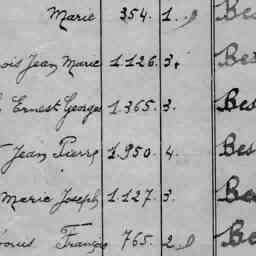 Marie 354. 1. Bes
ois Jean Marie 1.126. 3. Bes
Ernest Georges 1.365. 3. Bes
Jean Pierre 1.950. 4. Bes
Marie Joseph 1.127. 3. Bes
François 765. 2 Be